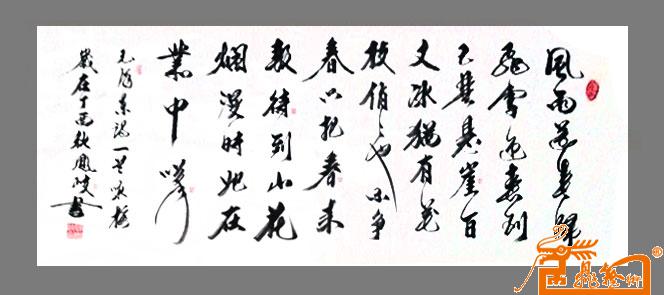 風雨送春歸
飛雪迎春到
已是懸崖百
丈冰猶有花
枝俏〻也不争
春只把春来
報待到山花
爛漫時她在
叢中咲
毛澤东词一首咏梅
歲在丁酉秋鳳岐书